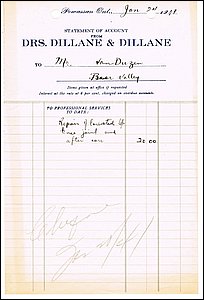 Powassan Ont., Jan 24 19
STATEMENT OF ACCOUNT
FROM
DRS. DILLANE & DILLANE
TO Mr. Van Duzen
Bear Valley
Items given at office if requested
Interest at the rate of 6 per cent. charged on overdue accounts.
TO PROFESSIONAL SERVICES
TO DATE:
Repair of
knee joint and
after care 25 00
Jan